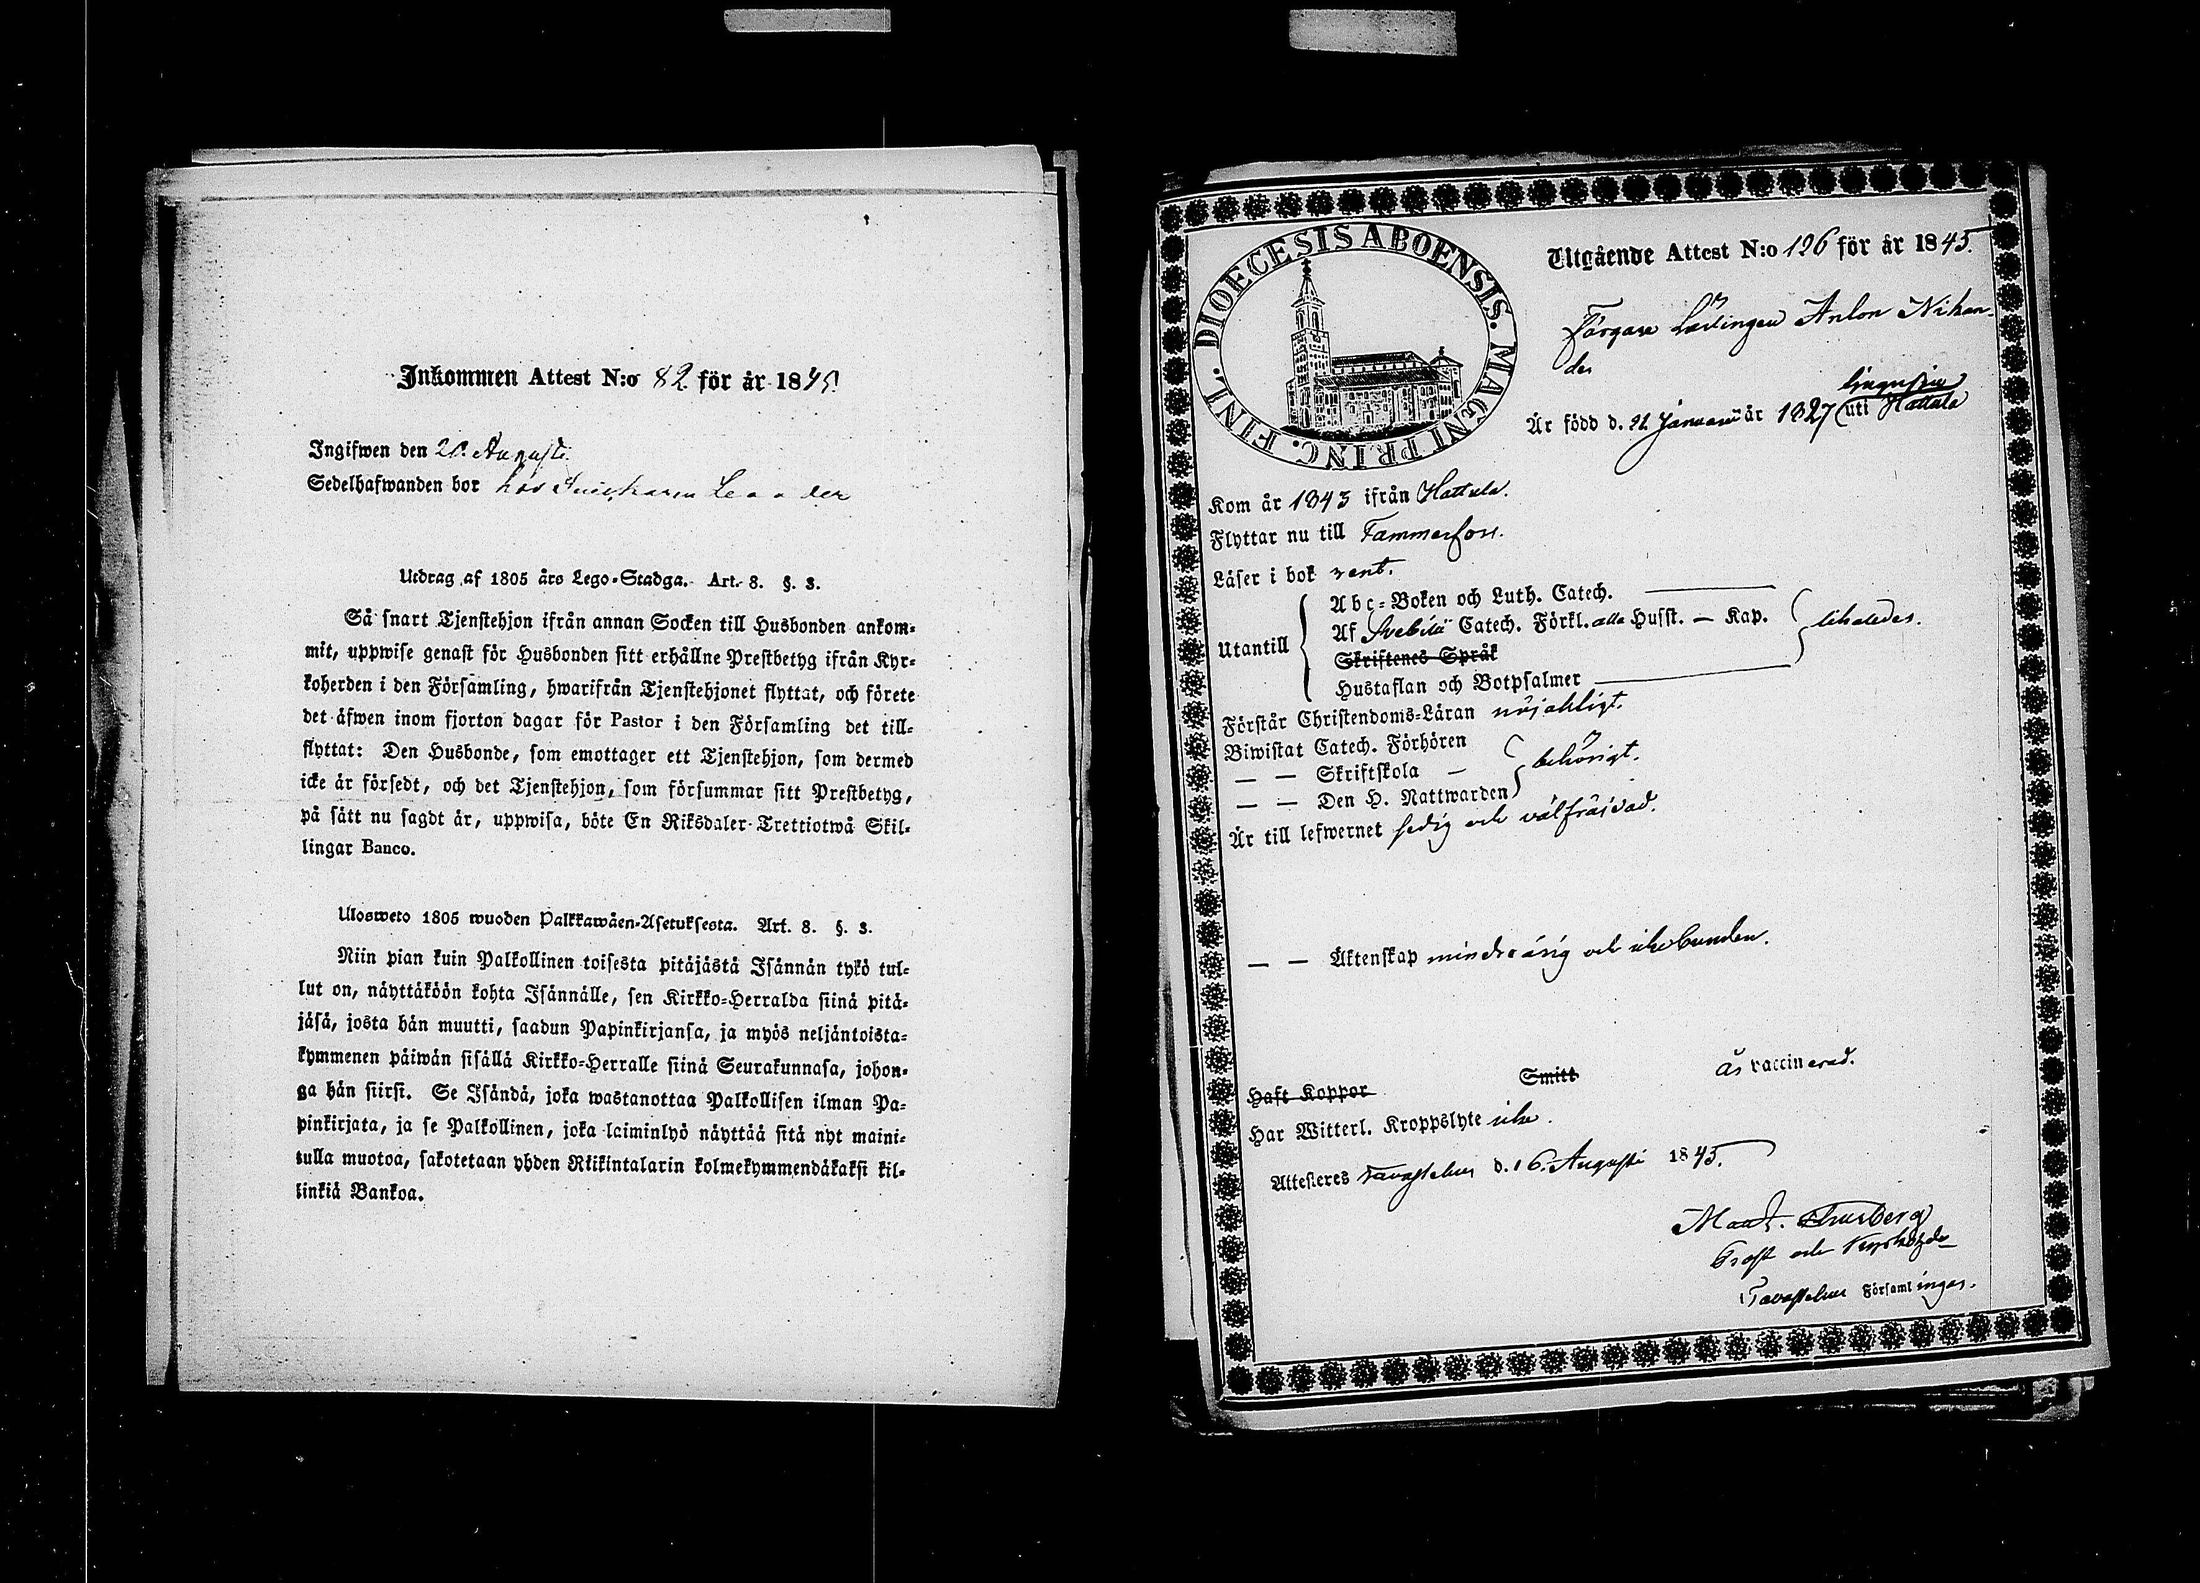 Inkommen Attest N:o 82 för år 1845.
Ingifwen den 20. Augusti.
Sedelhafwanden bor hos
Utdrag af 1805 års Lego-Stadga. Art. 8. §. 3.
Så snart Tjenstehjon ifrån annan Socken till Husbonden ankom-
mit, uppwise genast för Husbonden sitt erhållne Prestbetyg ifrån Kyr-
koherden i den Församling, hwarifrån Tjenstehjonet flyttat, och förete
det äfwen inom fjorton dagar för Pastor i den Församling det till-
flyttat: Den Husbonde, som emottager ett Tjenstehjon, som dermed
icke är försedt, och det Tjenstehjon, som försummar sitt Prestbetyg,
på sätt nu sagdt är, uppwisa, böte En Riksdaler Trettiotwå Skil-
lingar Banco.
Ulosweto 1805 wuoden Palkkawäen-Asetuksesta. Art. 8. §. 3.
Niin pian kuin Palkollinen toisesta pitäjästä Isännän tykö tul-
lut on, näyttäköön kohta Isännälle, sen Kirkko-Herralda siinä pitä-
jäsä, josta hän muutti, saadun Papinkirjansa, ja myös neljäntoista-
kymmenen päiwän sisällä Kirkko-Herralle siinä Seurakunnasa, johon-
ga hän siirsi. Se Isändä, joka wastanottaa Palkollisen ilman Pa-
pinkirjata, ja se Palkollinen, joka laiminlyö näyttää sitä nyt maini-
tulla muotoa, sakotetaan yhden Rikintalarin kolmekymmendäkaksi kil-
linkiä Bankoa.
DIOECESIS ABOENSIS. MAGNI PRINC. FINL.
Utgående Attest N:o 196 för år 1845.
Färgare Lärlingen Anton Nikan-
der
Är född d. 21 Januarii år 1827 uti Hattula
Kom år 1843 ifrån Hattula.
Flyttar nu till Tammerfors.
Läser i bok rent.
Utantill
Abc-Boken och Luth. Catech.
Af Svebilii Catech. Förkl. alla Husst. — Kap.
likaledes.
Skriftenes Språk
Hustaflan och Botpsalmer
Förstår Christendoms-Läran nöjaktigt.
Biwistat Catech. Förhören
— — Skriftskola —
behörigt.
— — Den H. Nattwarden
Är till lefwernet sedig och välfräjdad.
— — Äktenskap minderårig och icke bunden.
Haft Koppor Smitt är vaccinerad.
Har Witterl. Kroppslyte icke.
Attesteres Tavastehus d. 16. Augusti 1845.
Prost och Kyrkoherde
Tavastehus Församlingar.